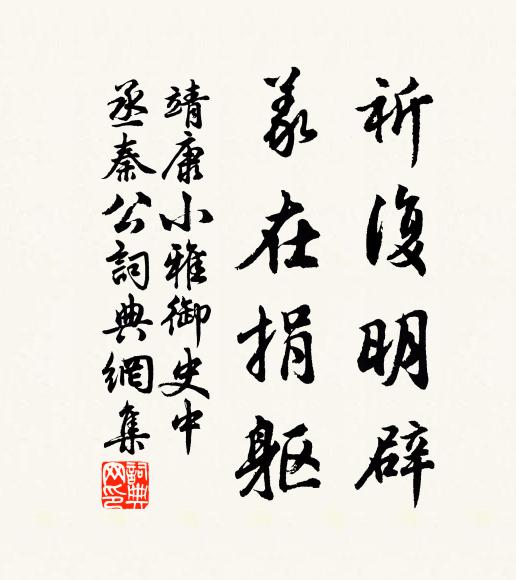 祈復明辟
義在捐軀
靖康小雅御史中
丞秦公詞典網集
詞典网印